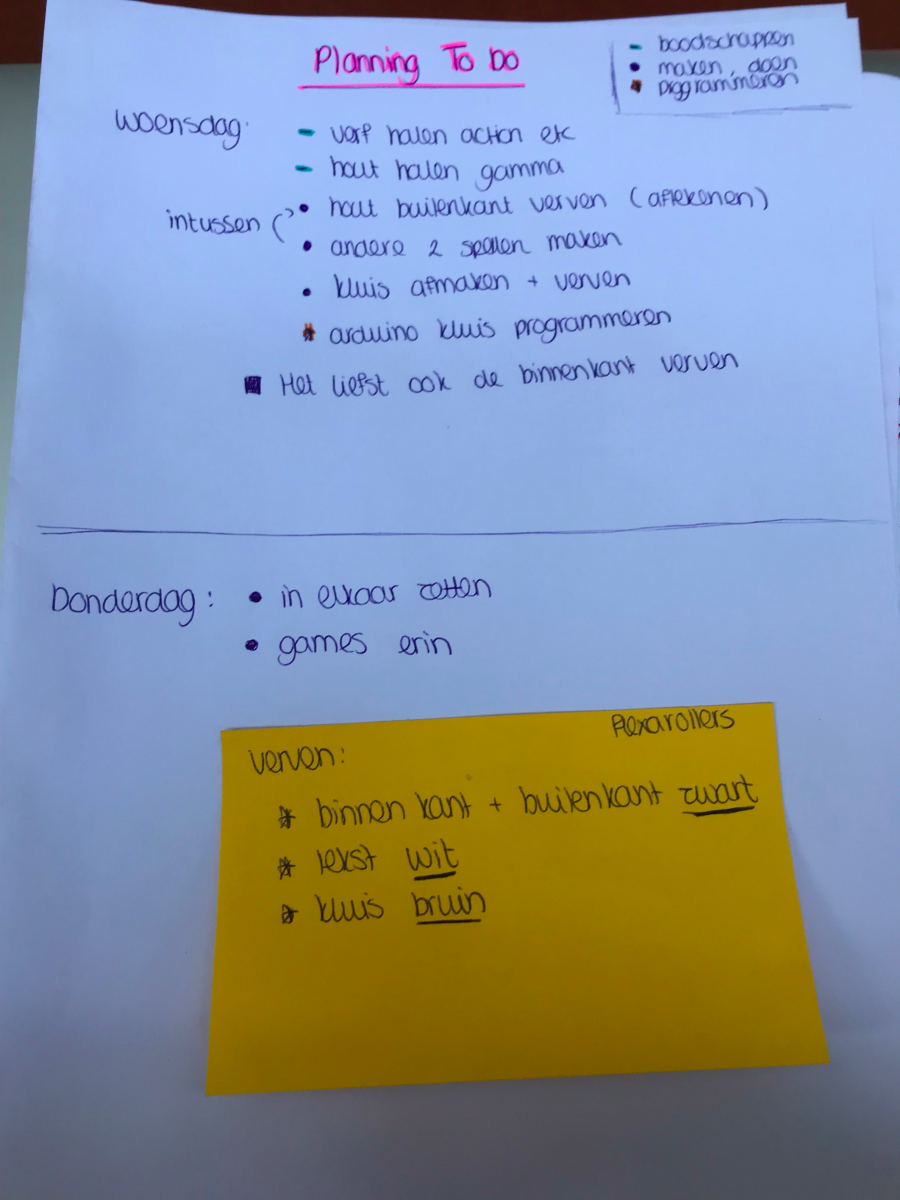 Planning To Do
- boodschappen
• maken, doen
* programmeren
Woensdag:
- verf halen action etc
- hout halen gamma
• hout buitenkant verven (aftekenen)
intussen
• andere 2 spellen maken
• kluis afmaken + verven
* arduino kluis programmeren
■ Het liefst ook de binnenkant verven
Donderdag:
• in elkaar zetten
• games erin
Flexarollers
verven:
* binnen kant + buitenkant zwart
* tekst wit
* kluis bruin